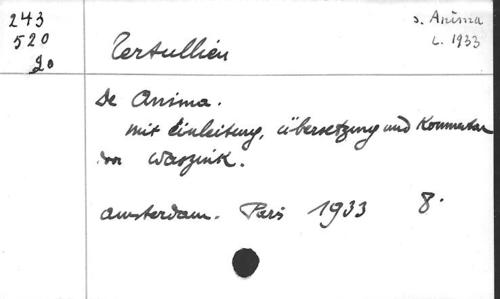 243
520
20
s. Anima
L. 1933
Tertullien
De Anima.
mit Einleitung, Übersetzung und Kommentar
von Waszink.
Amsterdam. Paris 1933 8.